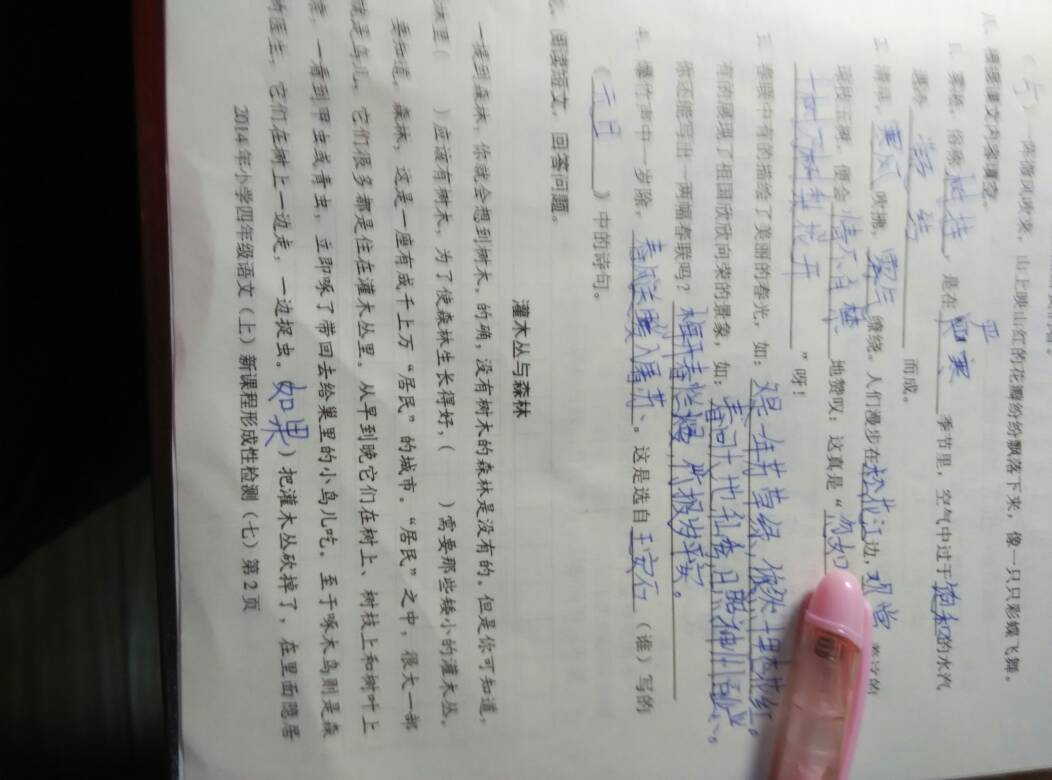 (5) 一阵微风吹来，山上映山红的花瓣纷纷飘落下来，像一只只彩蝶飞舞。
根据课文内容填空。
1. 雾凇，俗称树挂，是在严寒季节里，空气中过于饱和的水汽
遇冷凝结而成。
2. 清晨，寒风吹拂，雾气缭绕。人们漫步在松花江边，观赏
琼枝玉树，便会情不自禁地赞叹：这真是“忽如
千树万树梨花开”呀！
3. 春联中有的描绘了美丽的春光，如：又是一年芳草绿，依然十里杏花红。
有的展现了祖国欣欣向荣的景象，如：春回大地
你还能写出一两幅春联吗？岁岁平安。
4. 爆竹声中一岁除，春风送暖入屠苏。这是选自王安石（谁）写的
《元日》中的诗句。
阅读短文，回答问题。
灌木丛与森林
一提到森林，你就会想到树木。的确，没有树木的森林是没有的。但是你可知道，
林里（ ）应该有树木，为了使森林生长得好，（ ）需要那些矮小的灌木丛。
要知道，森林，这是一座有成千上万“居民”的城市。“居民”之中，很大一部
就是鸟儿，它们很多都是住在灌木丛里。从早到晚它们在树上、树枝上和树叶上
一看到甲虫或青虫，立即啄了带回去给巢里的小鸟儿吃。至于啄木鸟则是森
树医生，它们在树上一边走，一边捉虫。如果）把灌木丛砍掉了，在里面隐居
2014年小学四年级语文（上）新课程形成性检测（七）第2页